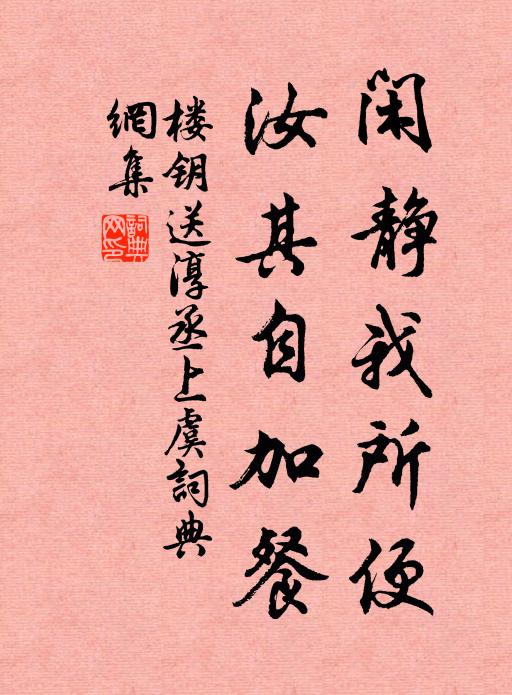 闲静我所便
汝其自加餐
楼钥送淳丞上虞詞典
網集
詞典網印